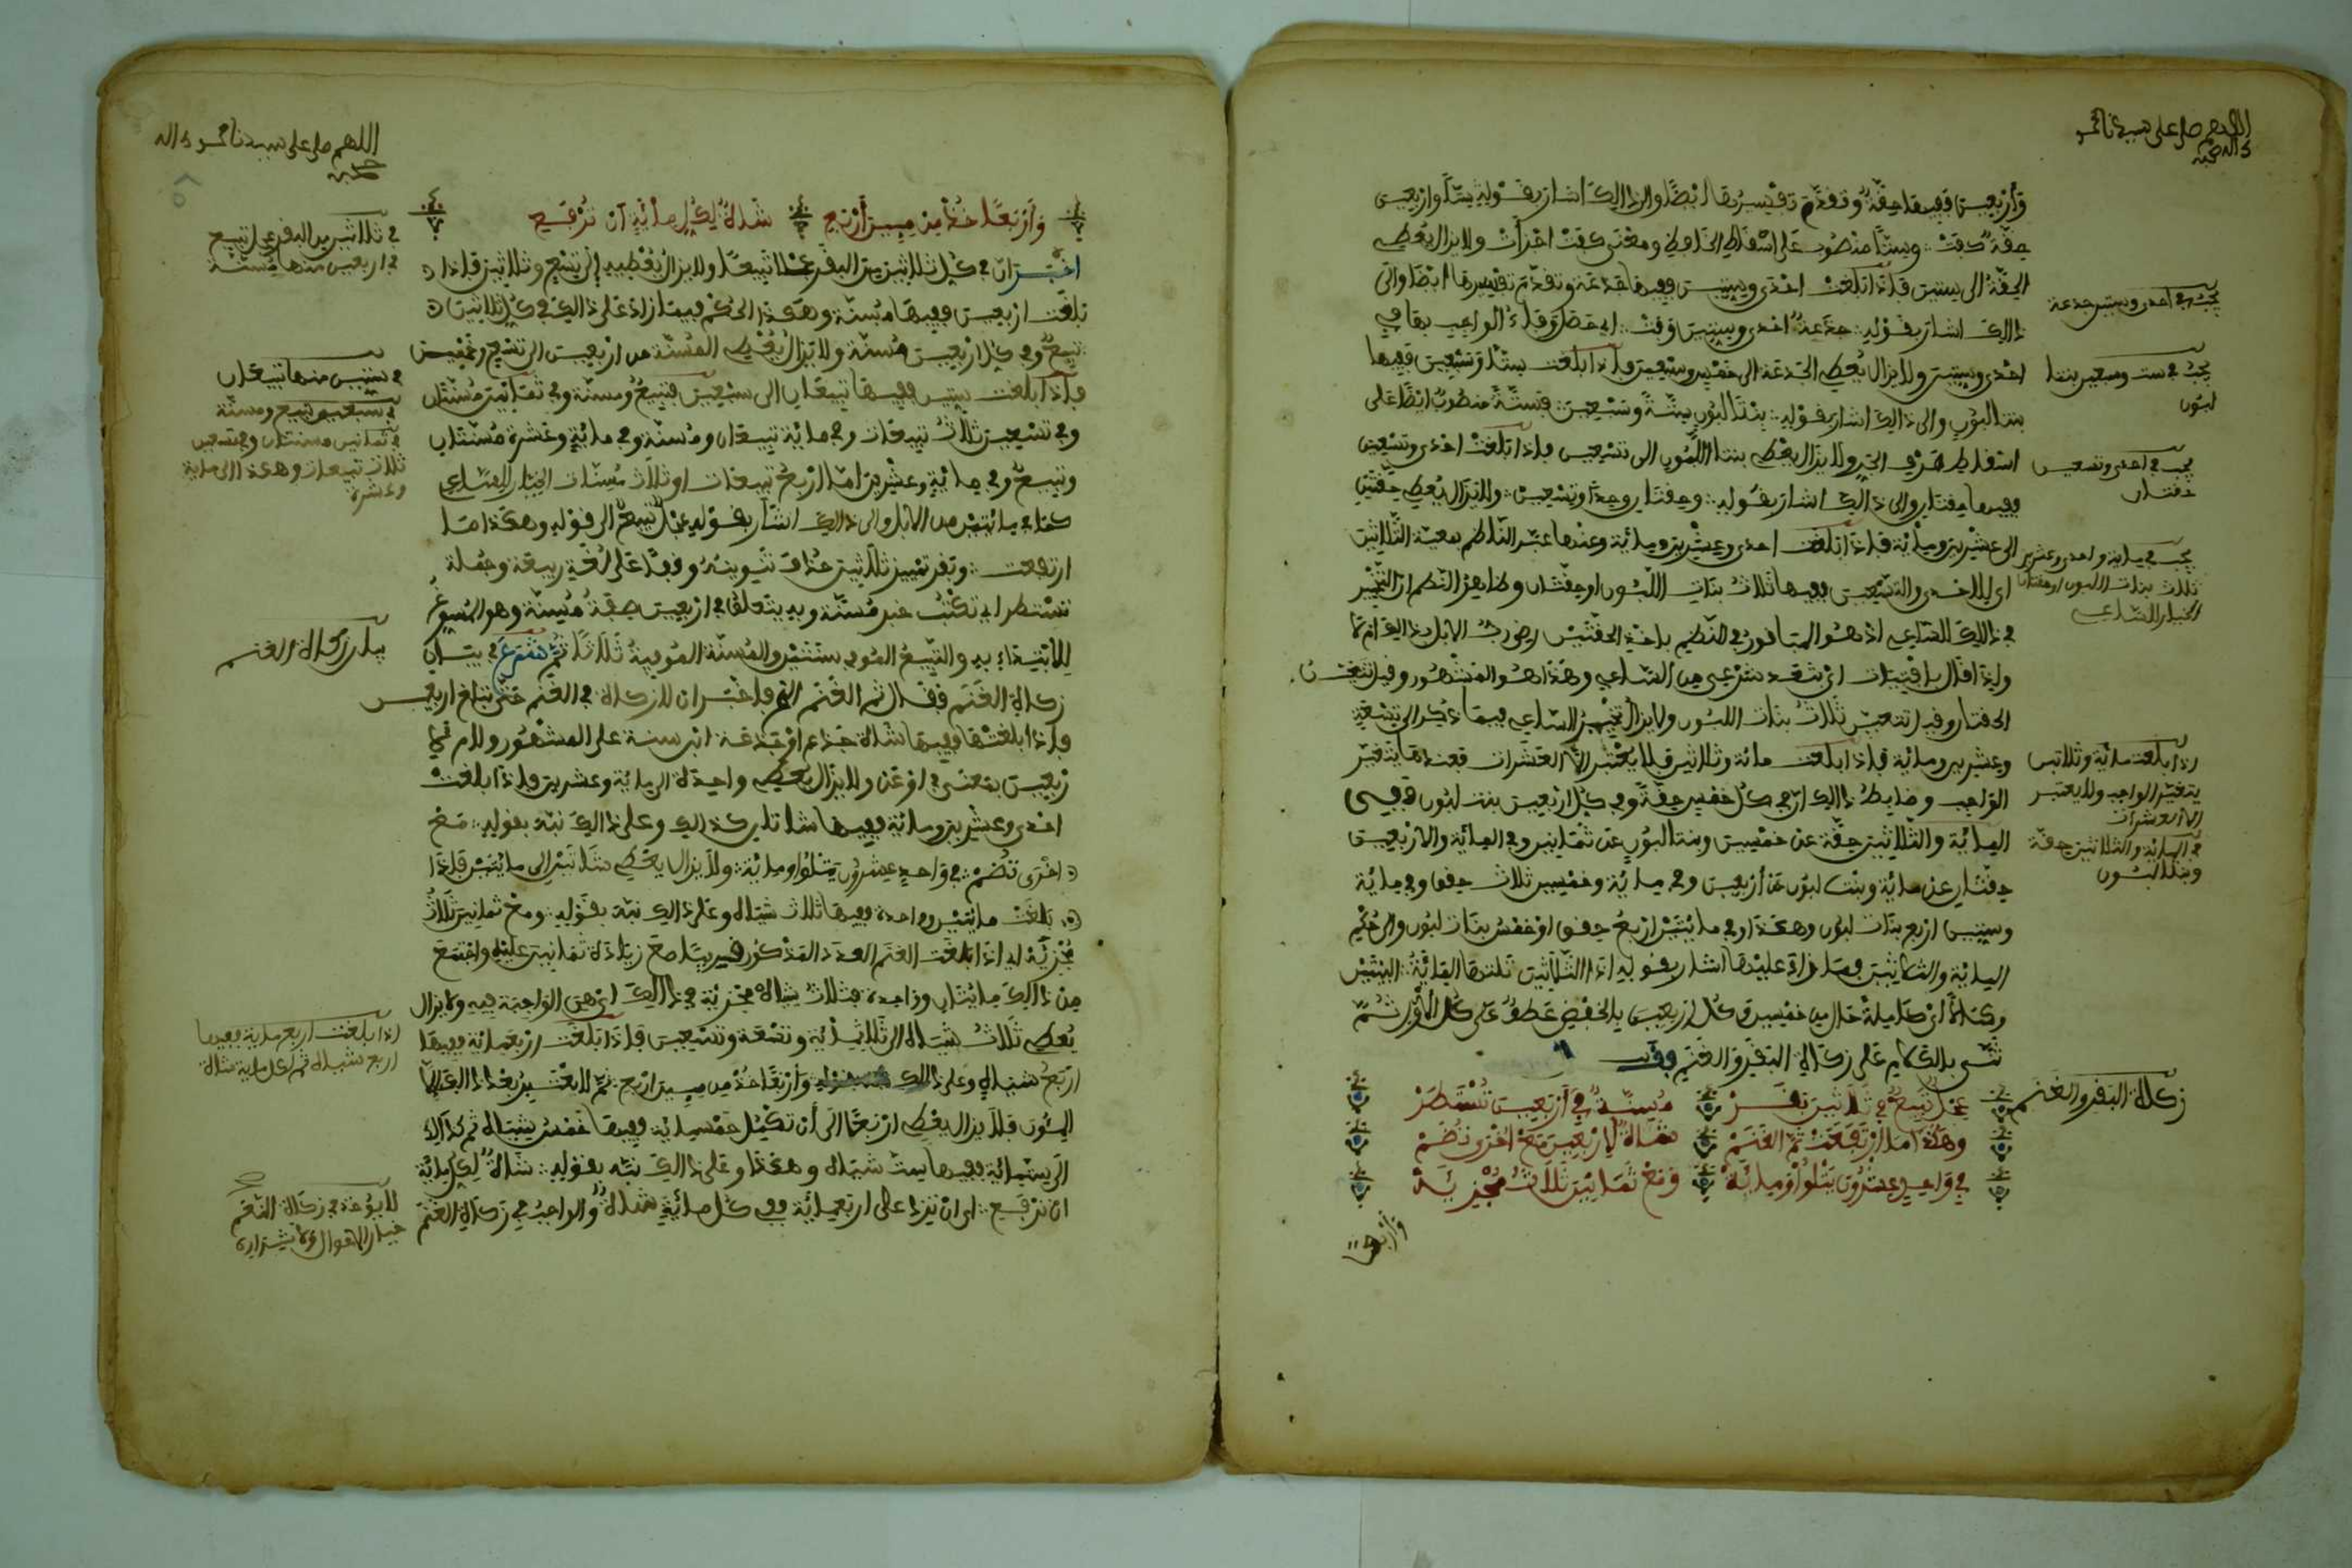 اللهم صل على سيدنا محمد
واله وصحبه
وأربعين ففيها حقة وتقدم تفسيرها أيضا والى ذالك اشار بقوله ستا واربعين
حقة كفت وستا منصوب على اسقاط الخافض ومعنى كفت اجزأت ولا يزال يعطي
الحقة الى ستين فإذا بلغت احدى وستين ففيها جذعة وتقدم تفسيرها ايضا والى
ذالك اشار بقوله جذعة احدى وستين وفت
احدى وستين ولا يزال يعطي الجذعة الى خمس وسبعين فإذا بلغت ستا وسبعين ففيها
بنتا لبون والى ذالك اشار بقوله بنتا لبون ستة وسبعين فستة منصوب ايضا على
اسقاط حرف الجر ولا يزال يعطي بنتا اللبون الى تسعين فإذا بلغت احدى وتسعين
ففيها حقتان والى ذالك اشار بقوله وحقتان وحدا وتسعين ولا يزال يعطي حقتين
الى عشرين ومائة فإذا بلغت احدى وعشرين ومائة وعنها عبر الناظم بمعية الثلاثين
اي للاحدى والتسعين ففيها ثلاث بنات اللبون او حقتان وظاهر النظم ان التخيير
في ذالك للساعي
الحقتان وقيل تتعين ثلاث بنات اللبون ولا يزال تخيير الساعي فيما ذكر الى تسعة
وعشرين ومائة فإذا بلغت مائة وثلاثين فلا يعتبر الا العشرات فعندها يتغير
الواجب وضابط ذالك ان في كل خمسين حقة وفي كل اربعين بنت لبون ففي
المائة والثلاثين حقة عن خمسين وبنتا لبون عن ثمانين وفي المائة والاربعين
حقتان عن مائة وبنت لبون عن أربعين وفي مائة وخمسين ثلاث حقق وفي مائة
وستين اربع بنات لبون وهكذا وفي مائتين اربع حقق او خمس بنات لبون والى حكم
المائة والثلاثين فما زاد عليها اشار بقوله اذا الثلاثين تلتها المائة البيتين
وكملا اي كاملة حال من خمسين وكل اربعين بالخفض عطف على كل الاول ثم
ثنى بالكلام على زكاة البقر والغنم فقال
عجل تبيع في ثلاثين بقر مسنة في أربعين تستطر
وهكذا ما ارتفعت ثم الغنم شاة لاربعين مع اخرى تضم
في واحد عشرون يتلو ومائة ومع ثمانين ثلاث مجزئة
وأربعا
يجب في احدى وستين جذعة
يجب في ست وسبعين بنتا
لبون
يجب في احدى وتسعين
حقتان
يجب في مائة واحدى وعشرين
ثلاث بنات اللبون او حقتان
الخيار للساعي
اذا بلغت مائة وثلاثين
يتغير الواجب ولا يعتبر
الا العشرات
في المائة والثلاثين حقة
وبنتا لبون
زكاة البقر والغنم
اللهم صل على سيدنا محمد واله
وصحبه
وأربعا خذ من مئين أربع شاة لكل مائة ان ترفع
اخبر ان في كل ثلاثين من البقر عجلا تبيعا ولا يزال يعطيه إلى تسع وثلاثين فإذا
بلغت اربعين ففيها مسنة وهكذا الحكم فيما زاد على ذالك في كل ثلاثين
تبيع وفي كل اربعين مسنة ولا يزال يعطي المسنة من اربعين الى تسع وخمسين
فإذا بلغت ستين ففيها تبيعان الى سبعين فتبيع ومسنة وفي ثمانين مسنتان
وفي تسعين ثلاث تبيعات وفي مائة تبيعان ومسنة وفي مائة وعشرة مسنتان
وتبيع وفي مائة وعشرين اما اربع تبيعات او ثلاث مسنات الخيار للساعي
كما في مائتين من الابل والى ذالك اشار بقوله عجل تبيع الى قوله وهكذا ما
ارتفعت وبقر تمييز ثلاثين حذف تنوينه وقفا على لغة ربيعة وجملة
تستطر اي تكتب خبر مسنة وبه يتعلق في اربعين صفة مسنة وهو المسوغ
للابتداء به والتبيع الموفي سنتين والمسنة الموفية ثلاثا ثم شرع في بيان
زكاة الغنم فقال ثم الغنم الخ فاخبر ان لا زكاة في الغنم حتى تبلغ اربعين
فإذا بلغتها ففيها شاة جذع او جذعة ابن سنة على المشهور ولام لا
ربعين بمعنى في او عن ولا يزال يعطي واحدة الى مائة وعشرين فإذا بلغت
احدى وعشرين ومائة ففيها شاتان كذالك وعلى ذالك نبه بقوله مع
اخرى تضم في واحد عشرون يتلو ومائة ولا يزال يعطي شاتين الى مائتين فإذا
بلغت مائتين وواحدة ففيها ثلاث شياه وعلى ذالك نبه بقوله ومع ثمانين ثلاث
مجزئة اي اذا بلغت الغنم العدد المذكور قريبا مع زيادة ثمانين عليه واجتمع
من ذالك مائتان وواحدة فثلاث شياه مجزئة في ذالك اي هي الواجبة فيه ولا يزال
يعطي ثلاث شياه الى ثلاثمائة وتسعة وتسعين فإذا بلغت اربعمائة ففيها
اربع شياه وعلى ذالك وأربعا خذ من مئين اربع ثم لا يعتبر بعد هذا الا
المئون فلا يزال يعطي اربعا الى أن تكمل خمسمائة ففيها خمس شياه ثم كذالك
الى ستمائة ففيها ست شياه وهكذا وعلى ذالك نبه بقوله شاة لكل مائة
ان ترفع اي ان تزد على اربعمائة ففي كل مائة شاة والواجب في زكاة الغنم
في ثلاثين من البقر عجل تبيع
في اربعين منها مسنة
في ستين منها تبيعان
في سبعين تبيع ومسنة
في ثمانين مسنتان وفي تسعين
ثلاث تبيعات وهكذا الى مائة
وعشرة
بيان زكاة الغنم
اذا بلغت اربع مائة ففيها
اربع شياه ثم لكل مائة شاة
لا يؤخذ في زكاة النعم
خيار الاموال ولا شرارها